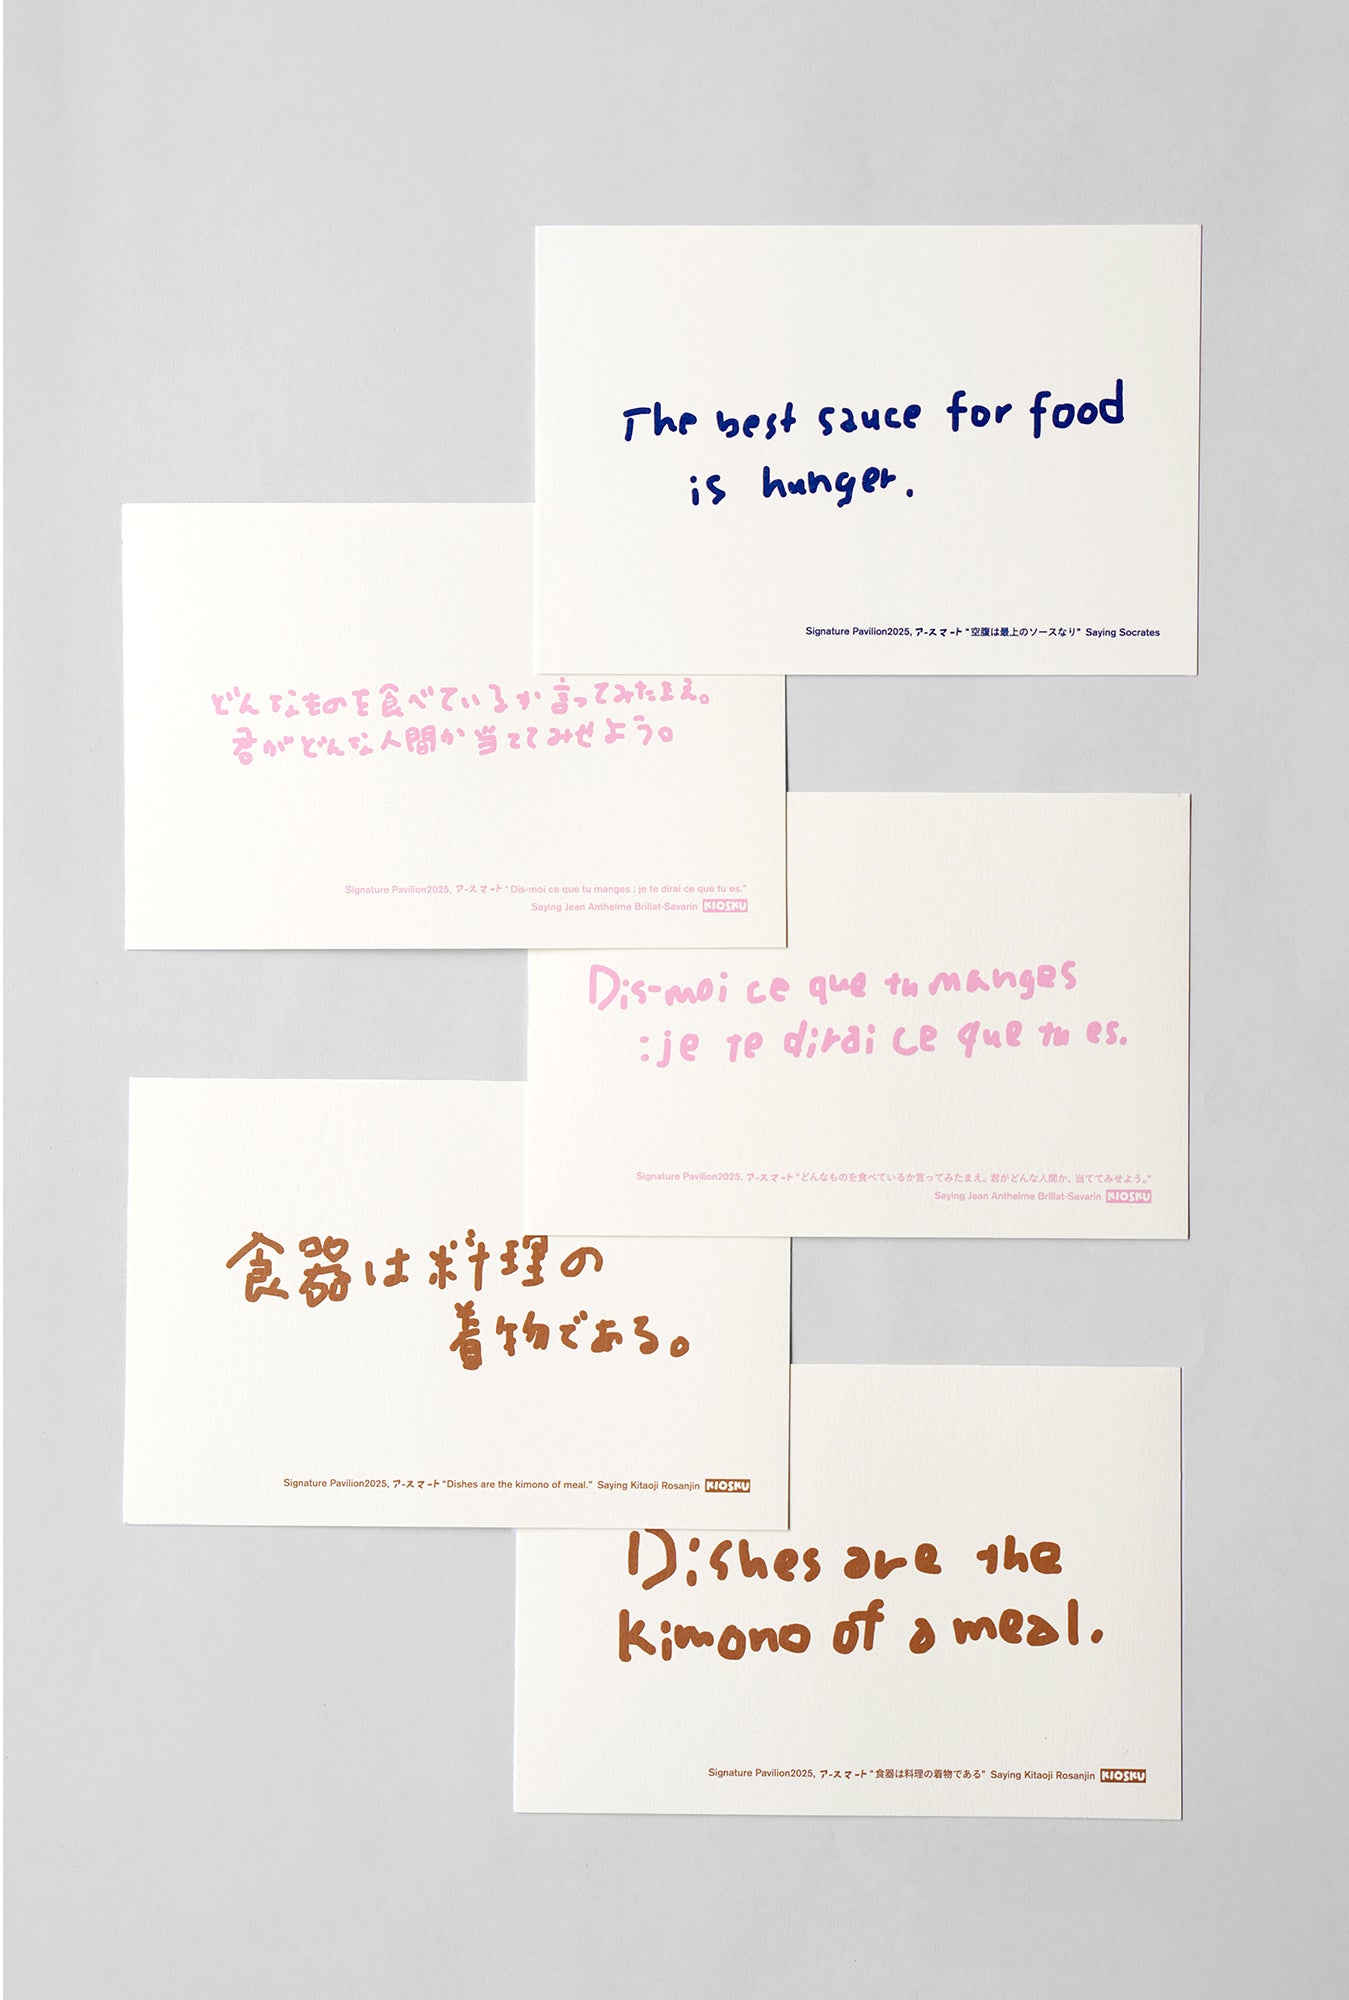 The best sauce for food
is hunger.
Signature Pavilion2025, アースマート “空腹は最上のソースなり” Saying Socrates
どんなものを食べているか言ってみたまえ。
君がどんな人間か当ててみせよう。
Signature Pavilion2025, アースマート “Dis-moi ce que tu manges : je te dirai ce que tu es.”
Saying Jean Anthelme Brillat-Savarin KIOSKU
Dis-moi ce que tu manges
: je te dirai ce que tu es.
Signature Pavilion2025, アースマート “どんなものを食べているか言ってみたまえ。君がどんな人間か、当ててみせよう。”
Saying Jean Anthelme Brillat-Savarin KIOSKU
食器は料理の
着物である。
Signature Pavilion2025, アースマート “Dishes are the kimono of meal.” Saying Kitaoji Rosanjin KIOSKU
Dishes are the
kimono of a meal.
Signature Pavilion2025, アースマート “食器は料理の着物である” Saying Kitaoji Rosanjin KIOSKU